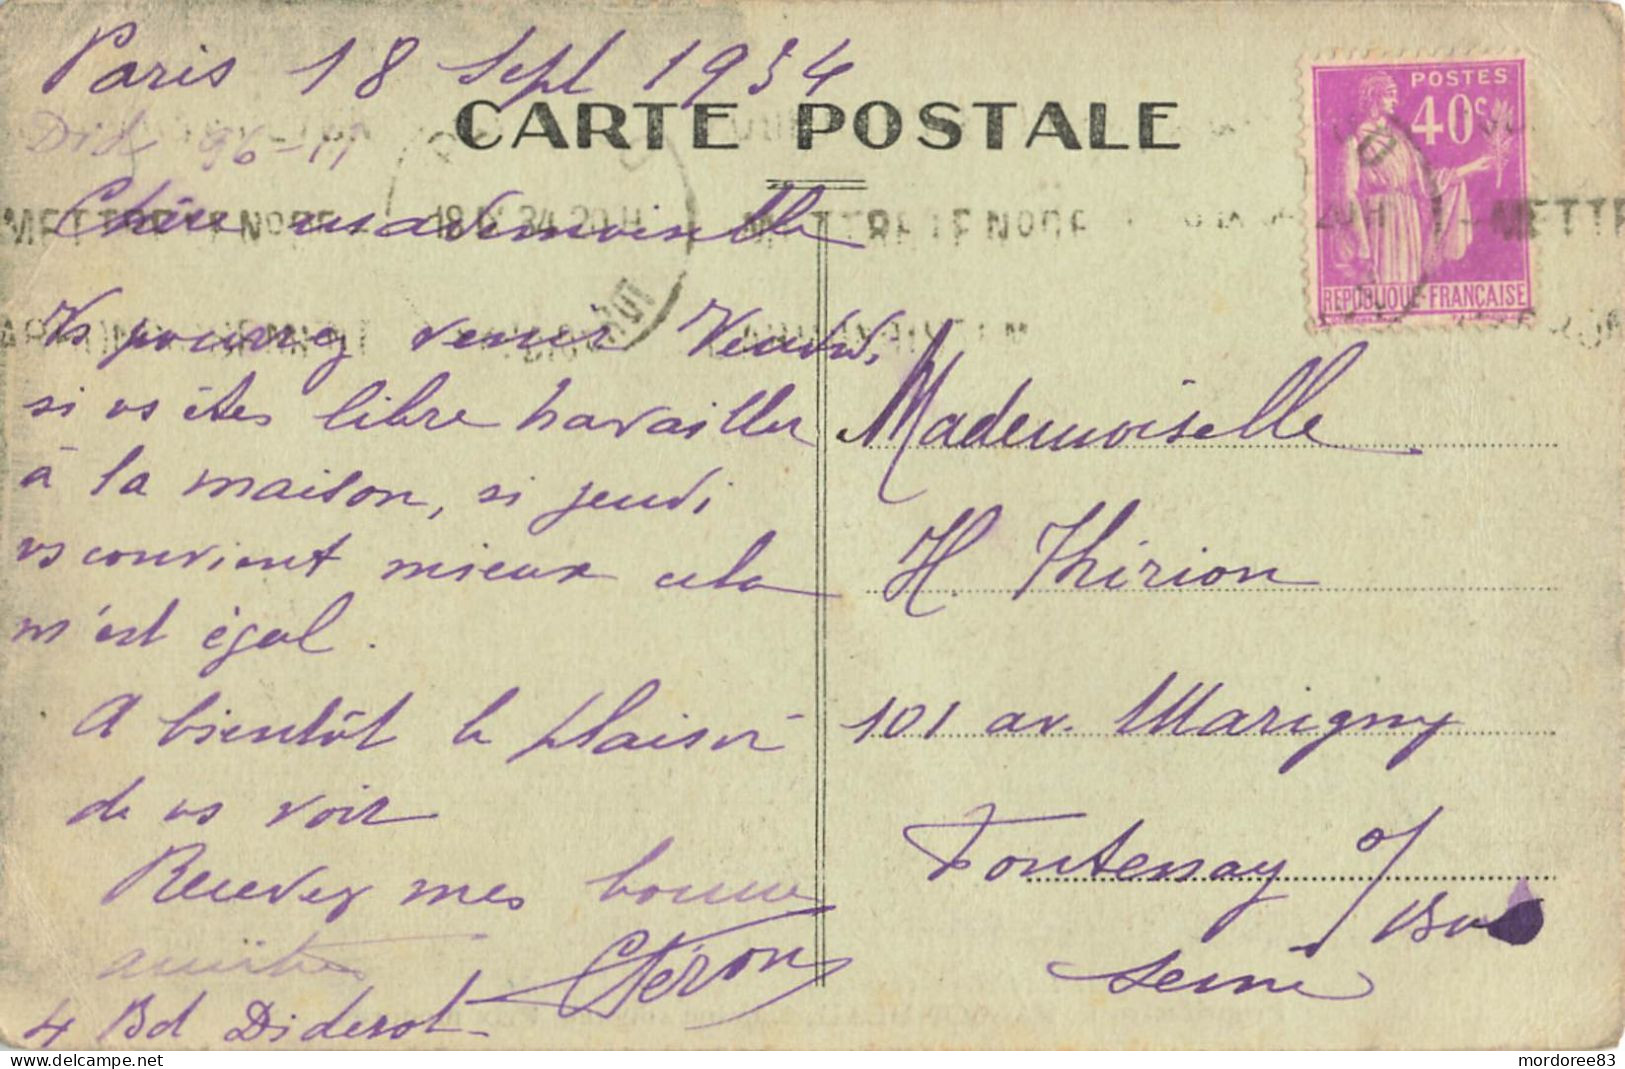 Paris 18 Sept 1934
CARTE POSTALE
Did. 96-11
Chère mademoiselle
Vs pourrez venir Vendr.
si vs êtes libre travailler
à la maison, si jeudi
vs convient mieux cela
m'est égal.
A bientôt le plaisir
de vs voir
Recevez mes bonnes
amitiés
4 Bd Diderot
POSTES
40c
REPUBLIQUE-FRANÇAISE
METTRE LE NoDE
18 IX 34 20 H
METTRE LE NoDE
METTR
Mademoiselle
H. Thirion
101 av. Marigny
Fontenay s/Bois
Seine
mordoree83